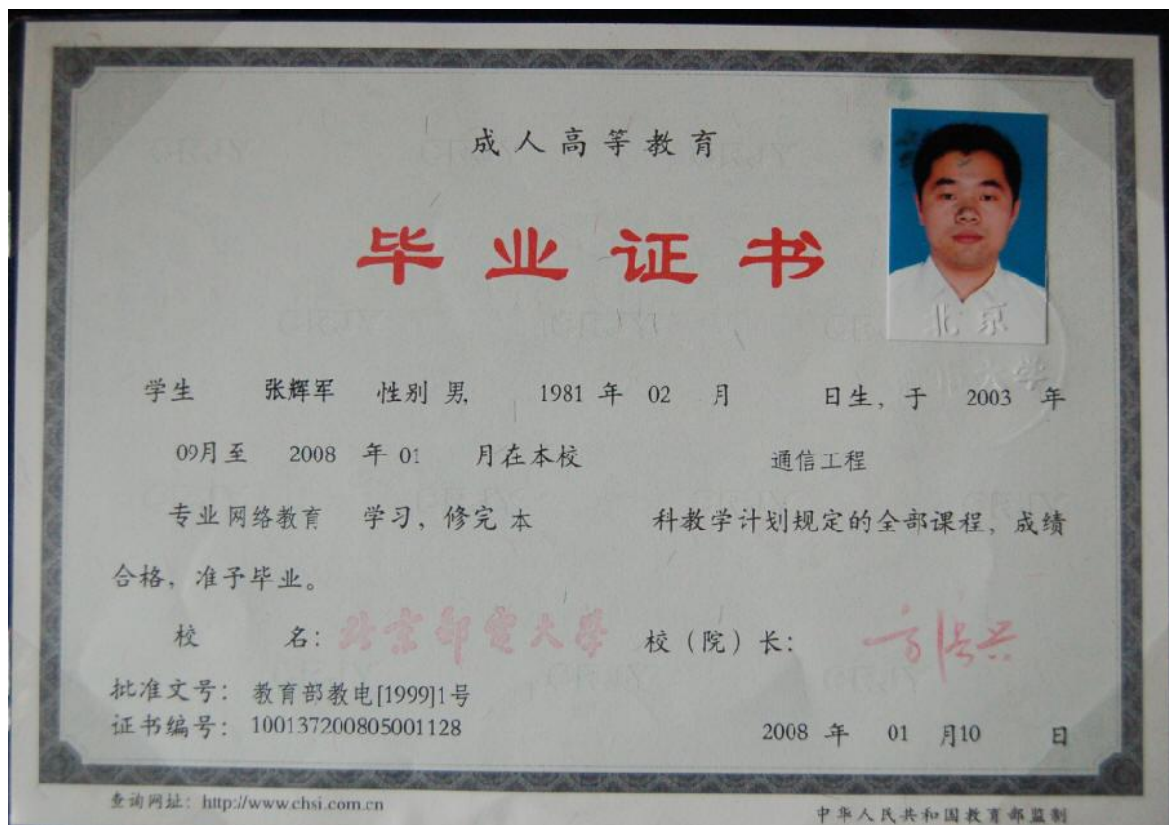 成人高等教育
毕业证书
学生 张辉军 性别 男 1981 年 02 月 日生，于 2003 年
09月至 2008 年 01 月在本校 通信工程
专业 网络教育 学习，修完 本 科教学计划规定的全部课程，成绩
合格，准予毕业。
校 名：北京邮电大学 校（院）长：方滨兴
批准文号： 教育部教电[1999]1号
证书编号： 100137200805001128
2008 年 01 月10 日
查询网址：http://www.chsi.com.cn
中华人民共和国教育部监制
北京
大学